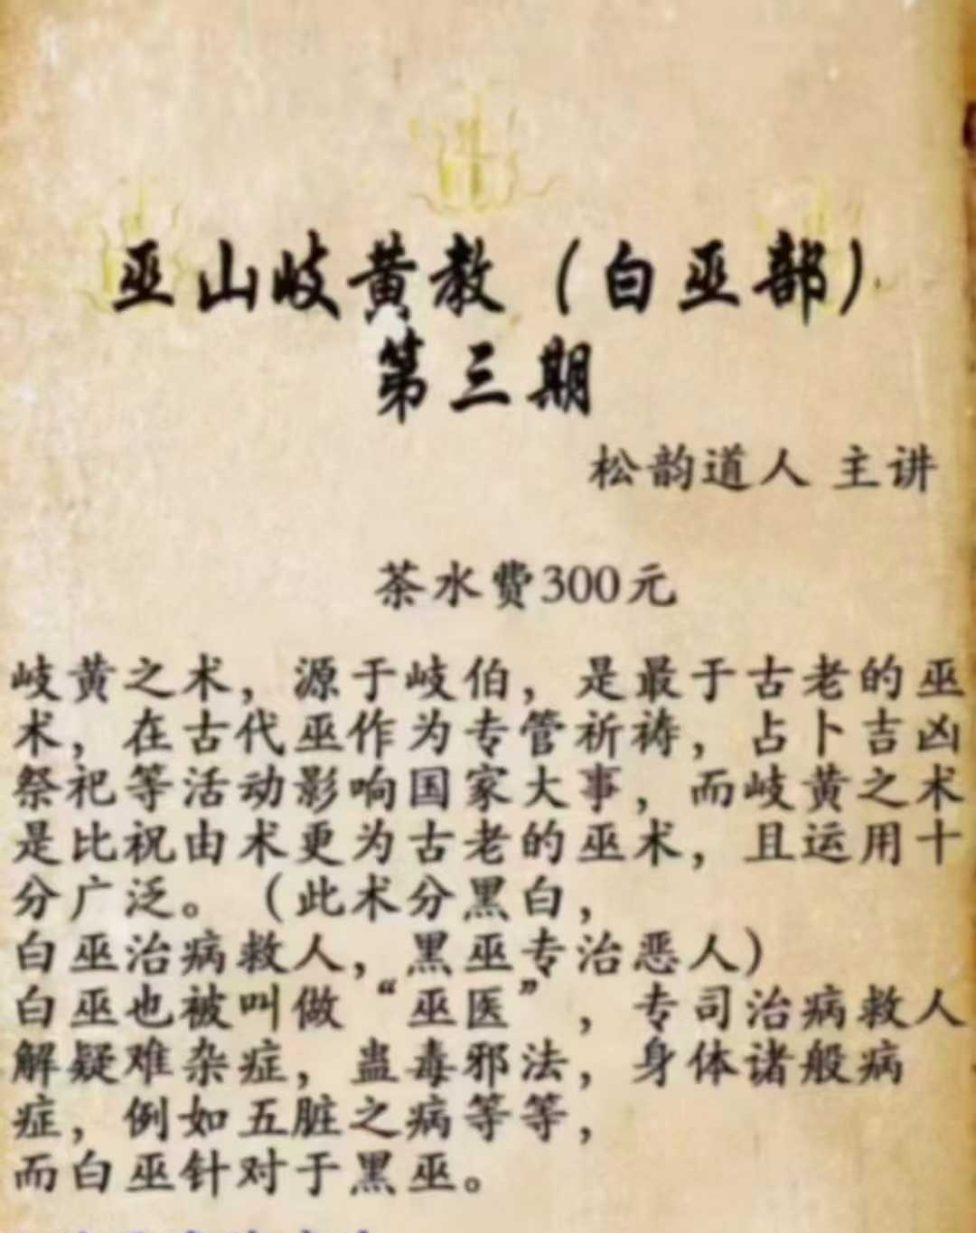 巫山岐黄教（白巫部）
第三期
松韵道人 主讲
茶水费300元
岐黄之术，源于岐伯，是最于古老的巫
术，在古代巫作为专管祈祷，占卜吉凶
祭祀等活动影响国家大事，而岐黄之术
是比祝由术更为古老的巫术，且运用十
分广泛。（此术分黑白，
白巫治病救人，黑巫专治恶人）
白巫也被叫做“巫医”，专司治病救人
解疑难杂症，蛊毒邪法，身体诸般病
症，例如五脏之病等等，
而白巫针对于黑巫。